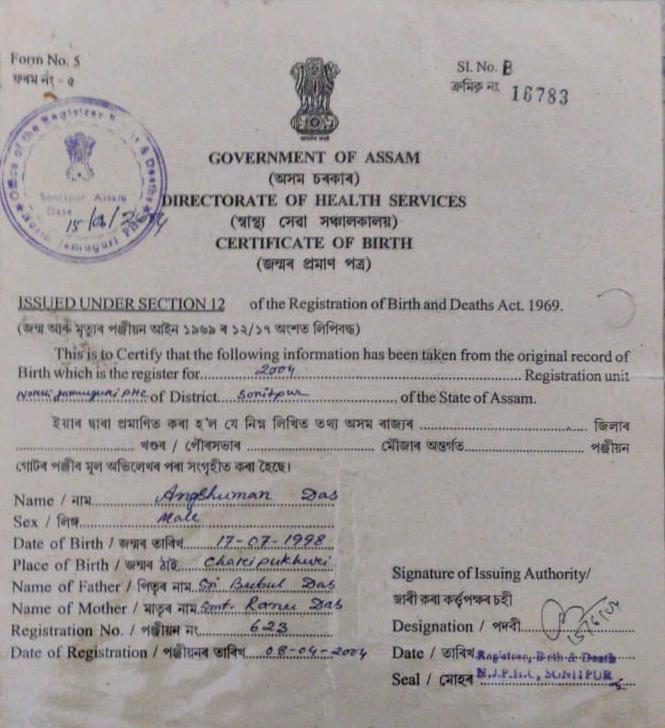 Form No. 5
ফৰম নং - ৫
Sl. No. B
ক্ৰমিক নং 16783
Office of the Registrar Birth & Deaths
Sonitpur Assam
Date 15/04/2004
North Jamuguri PHC
GOVERNMENT OF ASSAM
(অসম চৰকাৰ)
DIRECTORATE OF HEALTH SERVICES
(স্বাস্থ্য সেৱা সঞ্চালকালয়)
CERTIFICATE OF BIRTH
(জন্মৰ প্ৰমাণ পত্ৰ)
ISSUED UNDER SECTION 12 of the Registration of Birth and Deaths Act. 1969.
(জন্ম আৰু মৃত্যুৰ পঞ্জীয়ন আইন ১৯৬৯ ৰ ১২/১৭ অংশত লিপিবদ্ধ)
This is to Certify that the following information has been taken from the original record of
Birth which is the register for 2004 Registration unit
North Jamuguri PHC of District Sonitpur of the State of Assam.
ইয়াৰ দ্বাৰা প্ৰমাণিত কৰা হ'ল যে নিম্ন লিখিত তথ্য অসম ৰাজ্যৰ জিলাৰ
খণ্ডৰ / পৌৰসভাৰ মৌজাৰ অন্তৰ্গত পঞ্জীয়ন
গোটৰ পঞ্জীৰ মূল অভিলেখৰ পৰা সংগৃহীত কৰা হৈছে।
Name / নাম Angshuman Das
Sex / লিঙ্গ Male
Date of Birth / জন্মৰ তাৰিখ 17-07-1998
Place of Birth / জন্মৰ ঠাই Charipukhuri
Name of Father / পিতৃৰ নাম Sri Bubul Das
Name of Mother / মাতৃৰ নাম Smt. Ranu Das
Registration No. / পঞ্জীয়ন নং 623
Date of Registration / পঞ্জীয়নৰ তাৰিখ 08-04-2004
Signature of Issuing Authority/
জাৰী কৰা কৰ্ত্তৃপক্ষৰ চহী
Designation / পদবী
Date / তাৰিখ Registrar, Birth & Death
Seal / মোহৰ N.J.P.H.C, SONITPUR